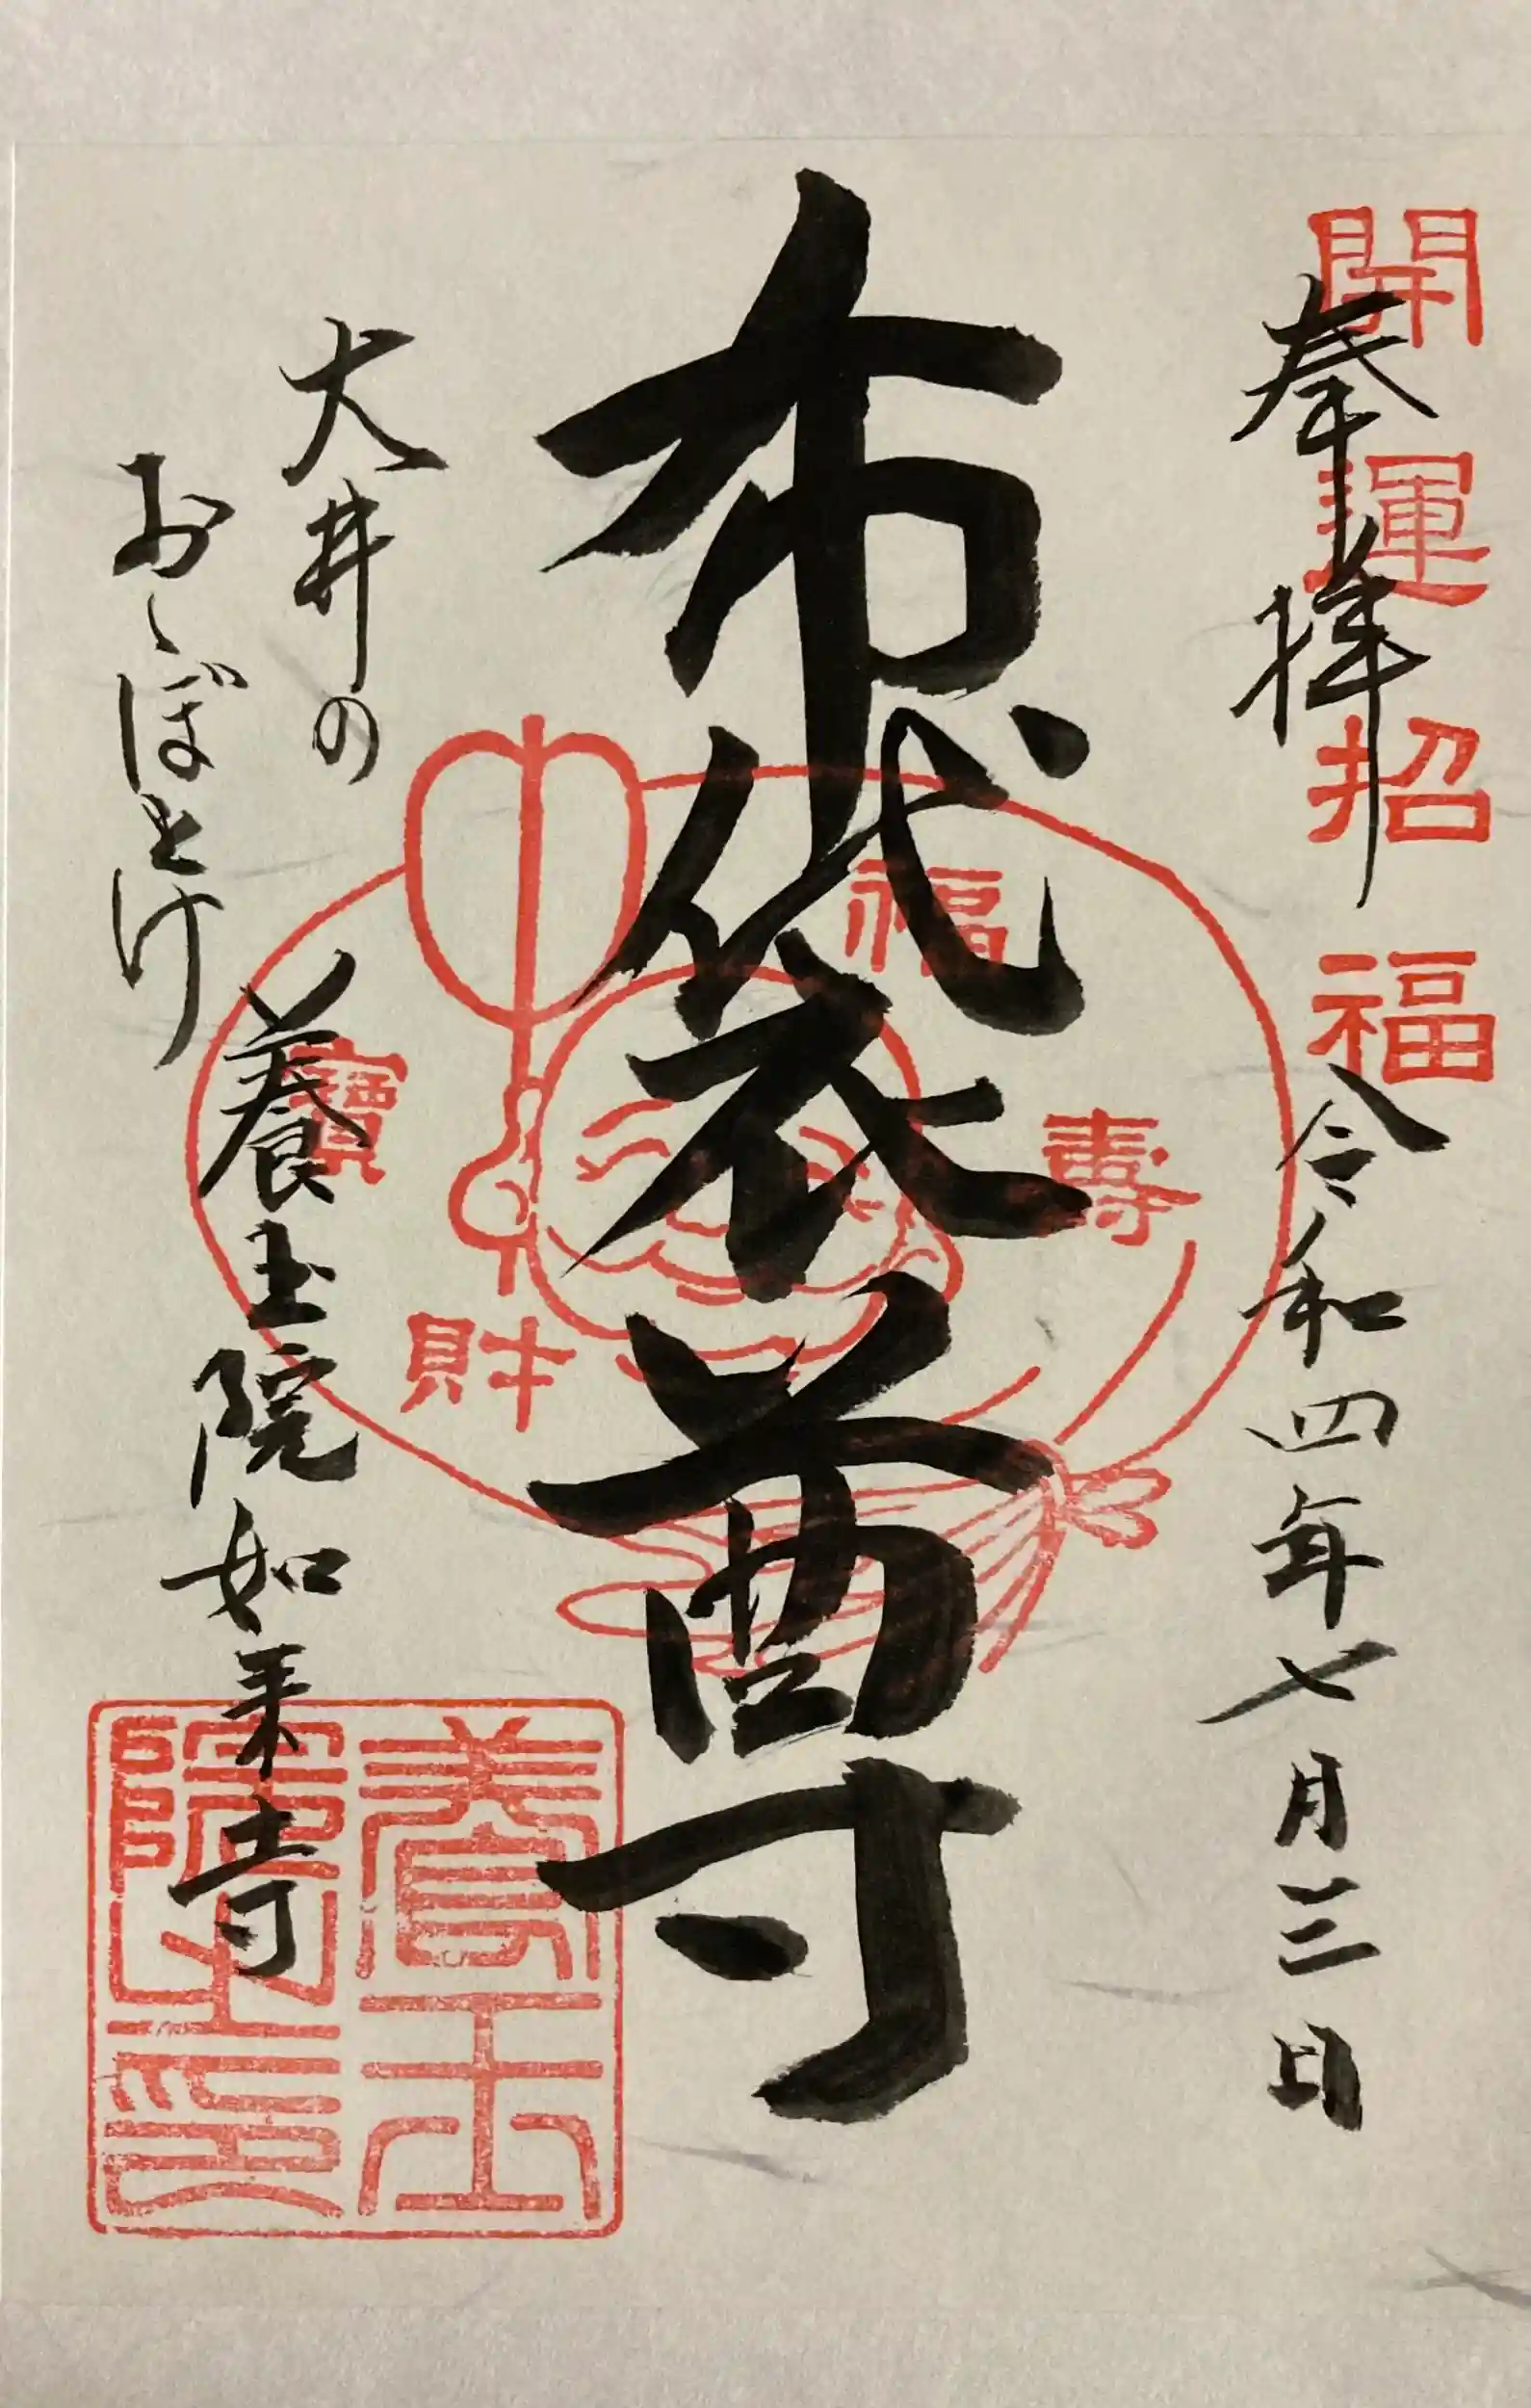 開運招福
奉拝
令和四年七月三日
布袋尊
福
壽
寳
財
大井の
おゝぼとけ
養玉院如来寺
養玉
院印